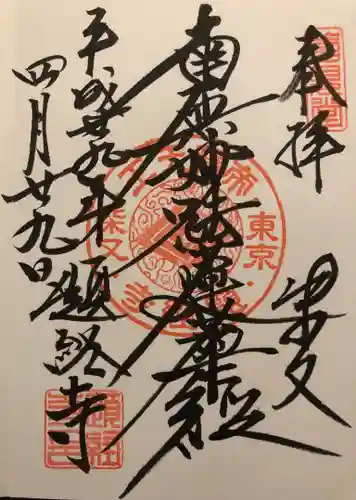 奉拝
柴又
南無妙法蓮華経
平成廿九年
四月廿九日
題経寺
帝
東京・
柴又
題経